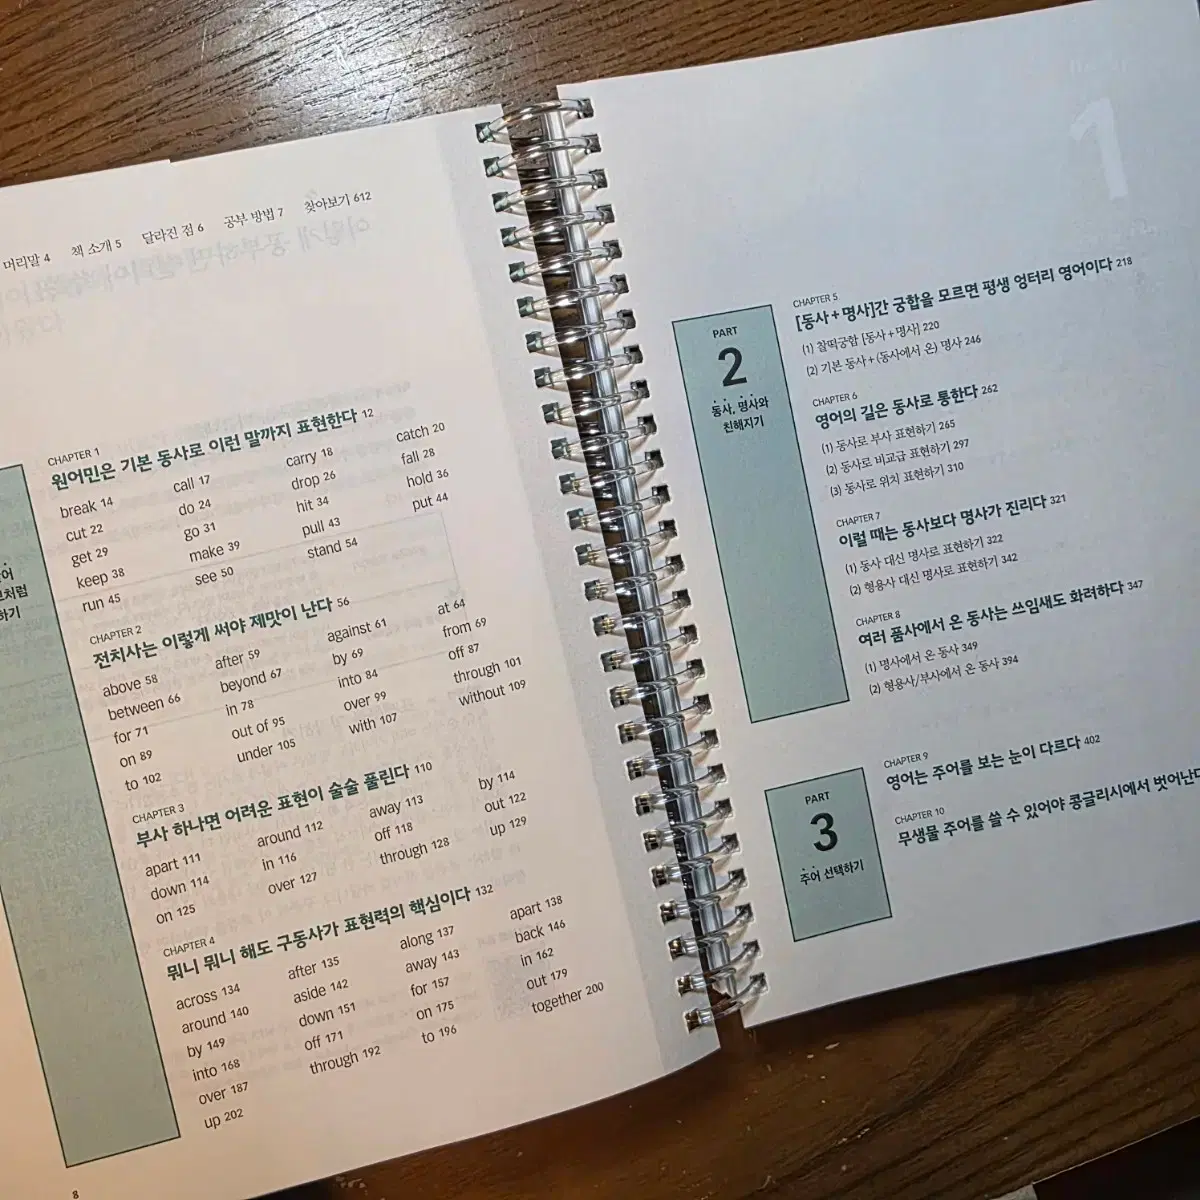 머리말 4 책 소개 5 달라진 점 6 공부 방법 7 찾아보기 612
CHAPTER 1
원어민은 기본 동사로 이런 말까지 표현한다 12
break 14 call 17 carry 18 catch 20
cut 22 do 24 drop 26 fall 28
get 29 go 31 hit 34 hold 36
keep 38 make 39 pull 43 put 44
run 45 see 50 stand 54
CHAPTER 2
전치사는 이렇게 써야 제맛이 난다 56
above 58 after 59 against 61 at 64
between 66 beyond 67 by 69 from 69
for 71 in 78 into 84 off 87
on 89 out of 95 over 99 through 101
to 102 under 105 with 107 without 109
CHAPTER 3
부사 하나면 어려운 표현이 술술 풀린다 110
apart 111 around 112 away 113 by 114
down 114 in 116 off 118 out 122
on 125 over 127 through 128 up 129
CHAPTER 4
뭐니 뭐니 해도 구동사가 표현력의 핵심이다 132
across 134 after 135 along 137 apart 138
around 140 aside 142 away 143 back 146
by 149 down 151 for 157 in 162
into 168 off 171 on 175 out 179
over 187 through 192 to 196 together 200
up 202
8
1
PART
2
동사, 명사와
친해지기
CHAPTER 5
[동사+명사]간 궁합을 모르면 평생 엉터리 영어이다 218
(1) 찰떡궁합 [동사+명사] 220
(2) 기본 동사+(동사에서 온) 명사 246
CHAPTER 6
영어의 길은 동사로 통한다 262
(1) 동사로 부사 표현하기 265
(2) 동사로 비교급 표현하기 297
(3) 동사로 위치 표현하기 310
CHAPTER 7
이럴 때는 동사보다 명사가 진리다 321
(1) 동사 대신 명사로 표현하기 322
(2) 형용사 대신 명사로 표현하기 342
CHAPTER 8
여러 품사에서 온 동사는 쓰임새도 화려하다 347
(1) 명사에서 온 동사 349
(2) 형용사/부사에서 온 동사 394
PART
3
주어 선택하기
CHAPTER 9
영어는 주어를 보는 눈이 다르다 402
CHAPTER 10
무생물 주어를 쓸 수 있어야 콩글리시에서 벗어난다